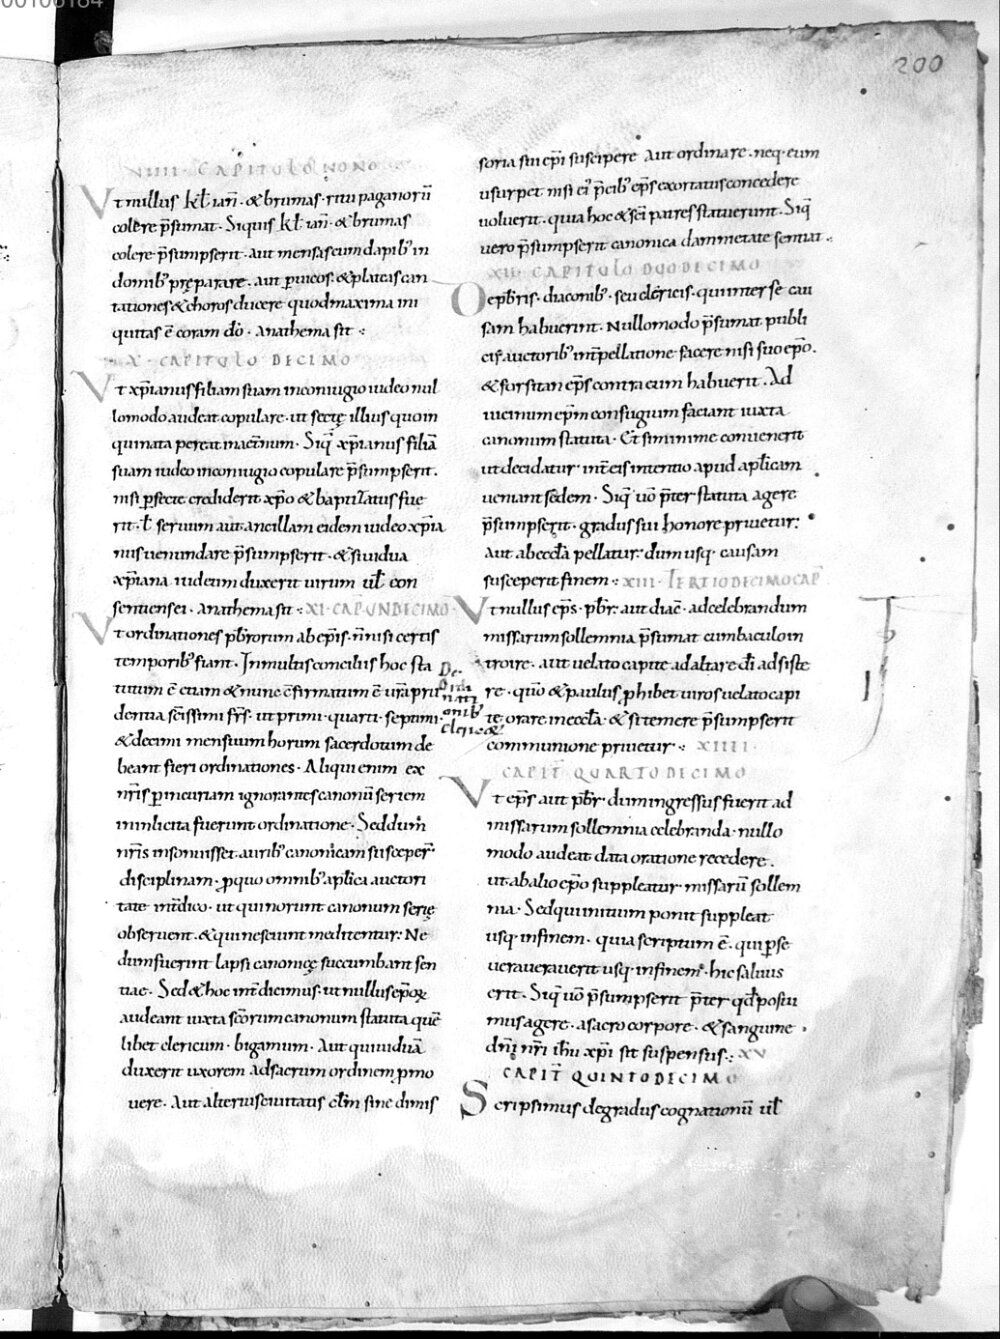 00106184
200
VIIII · CAPITULO NONO
Vt nullus kł ian̄ · & brumas · ritu paganorū
colere p̄sumat · Siquis kł ian̄ · & brumas
colere p̄sumpserit · aut mensas cum dapib; in
domib; pręparare · aut p uicos · & plateas can
tationes & choros ducere quod maxima ini
quitas ē coram dō · Anathema sit :
X · CAPITULO DECIMO
Vt xp̄ianus filiam suam in coniugio iudeo nul
lomodo audeat copulare · ut sectę illius quoin
quinata pereat in aet̄num · Siq̄ xp̄ianus filiā
suam iudeo in coniugio copulare p̄sumpserit ·
nisi pfecte crediderit xp̄o & baptizatus fue
rit · ł seruum aut ancillam eidem iudeo xp̄ia
nus uenundare p̄sumpserit · & si uidua
xp̄iana iudeum duxerit uirum uł con
sentiens ei · anathema sit : XI · CAP UNDECIMO
Vt ordinationes pb̄rorum ab ep̄is · n̄ nisi certis
temporib; fiant · In multis conciliis hoc sta
tutum ē etiam & nunc c̄firmatum ē ur̄a pru
dentia sc̄issimi fr̄s · ut primi · quarti · septimi ·
& decimi mensium horum sacerdotum de
beant fieri ordinationes · Aliqui enim ex
nr̄is p incuriam ignorantes canonū seriem
in inlicita fuerunt ordinatione · Sed dum
nr̄is insonuisset aurib; canonicam susceper̄
disciplinam · pquo omnib; aplica auctori
tate int̄dico · ut qui norunt canonum serię
obseruent · & qui nesciunt meditentur · Ne
dum fuerint lapsi canonicę succumbant sen
tiae · Sed & hoc int̄dicimus · ut nullus ep̄oꝝ
audeant iuxta sc̄orum canonum statuta quē
libet clericum · bigamum · Aut qui uiduā
duxerit uxorem ad sacrum ordinem pmo
uere · Aut alterius ciuitatis cl̄m sine dimis
De
Ordi
nati
onib;
Cleric&
soria sui ep̄i suscipere aut ordinare · neq · eum
usurpet nisi ei p̄cib; ep̄s exoratus concedere
uoluerit · quia hoc & sc̄i patres statuerunt · Siq̄
uero p̄sumpserit canonica dammetate sentiat ·
XII · CAPITULO DUODECIMO
De pb̄ris · diaconib; · seu clericis · qui inter se cau
sam habuerint · Nullomodo p̄sumat publi
cis auctorib; int̄pellatione facere nisi suo ep̄o ·
& forsitan ep̄s contra eum habuerit · Ad
uicinum ep̄m confugium faciant iuxta
canonum statuta · Et si minime conuenerit
ut decidatur int̄ eis intentio apud ap̄licam
ueniant sedem · Siq̄ uō p̄ter statuta agere
p̄sumpserit · gradus sui honore priuetur :
Aut ab eccl̄a pellatur · dum usq · causam
susceperit finem : XIII · TERTIODECIMO CAP
Vt nullus ep̄s · pb̄r · aut diac̄ · ad celebrandum
missarum sollemnia p̄sumat cum baculo in
troire · aut uelato capite ad altare dī adsiste
re · quō & paulus phibet uiros uelato capi
te orare in eccl̄a · & si temere p̄sumpserit
communione priuetur : XIIII ·
CAPIT̄ QUARTODECIMO
Vt ep̄s aut pb̄r · dum ingressus fuerit ad
missarum sollemnia celebranda · nullo
modo audeat data oratione recedere ·
ut ab alio ep̄o suppleatur · missarū sollem
nia · Sed qui initium ponit suppleat
usq · in finem · quia scriptum ē · qui pse
uerauerauerit usq · in finem · hic saluus
erit · Siq̄ uō p̄sumpserit p̄ter qd̄ posui
mus agere · a sacro corpore · & sanguine
dn̄i nr̄i ih̄u xp̄i sit suspensus : XV
CAPIT̄ QUINTODECIMO
Scripsimus de gradus cognationū uł